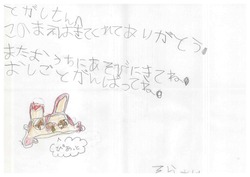 とがしさん
このまえはきてくれてありがとう。
またおうちにあそびにきてね。
おしごとがんばってね。